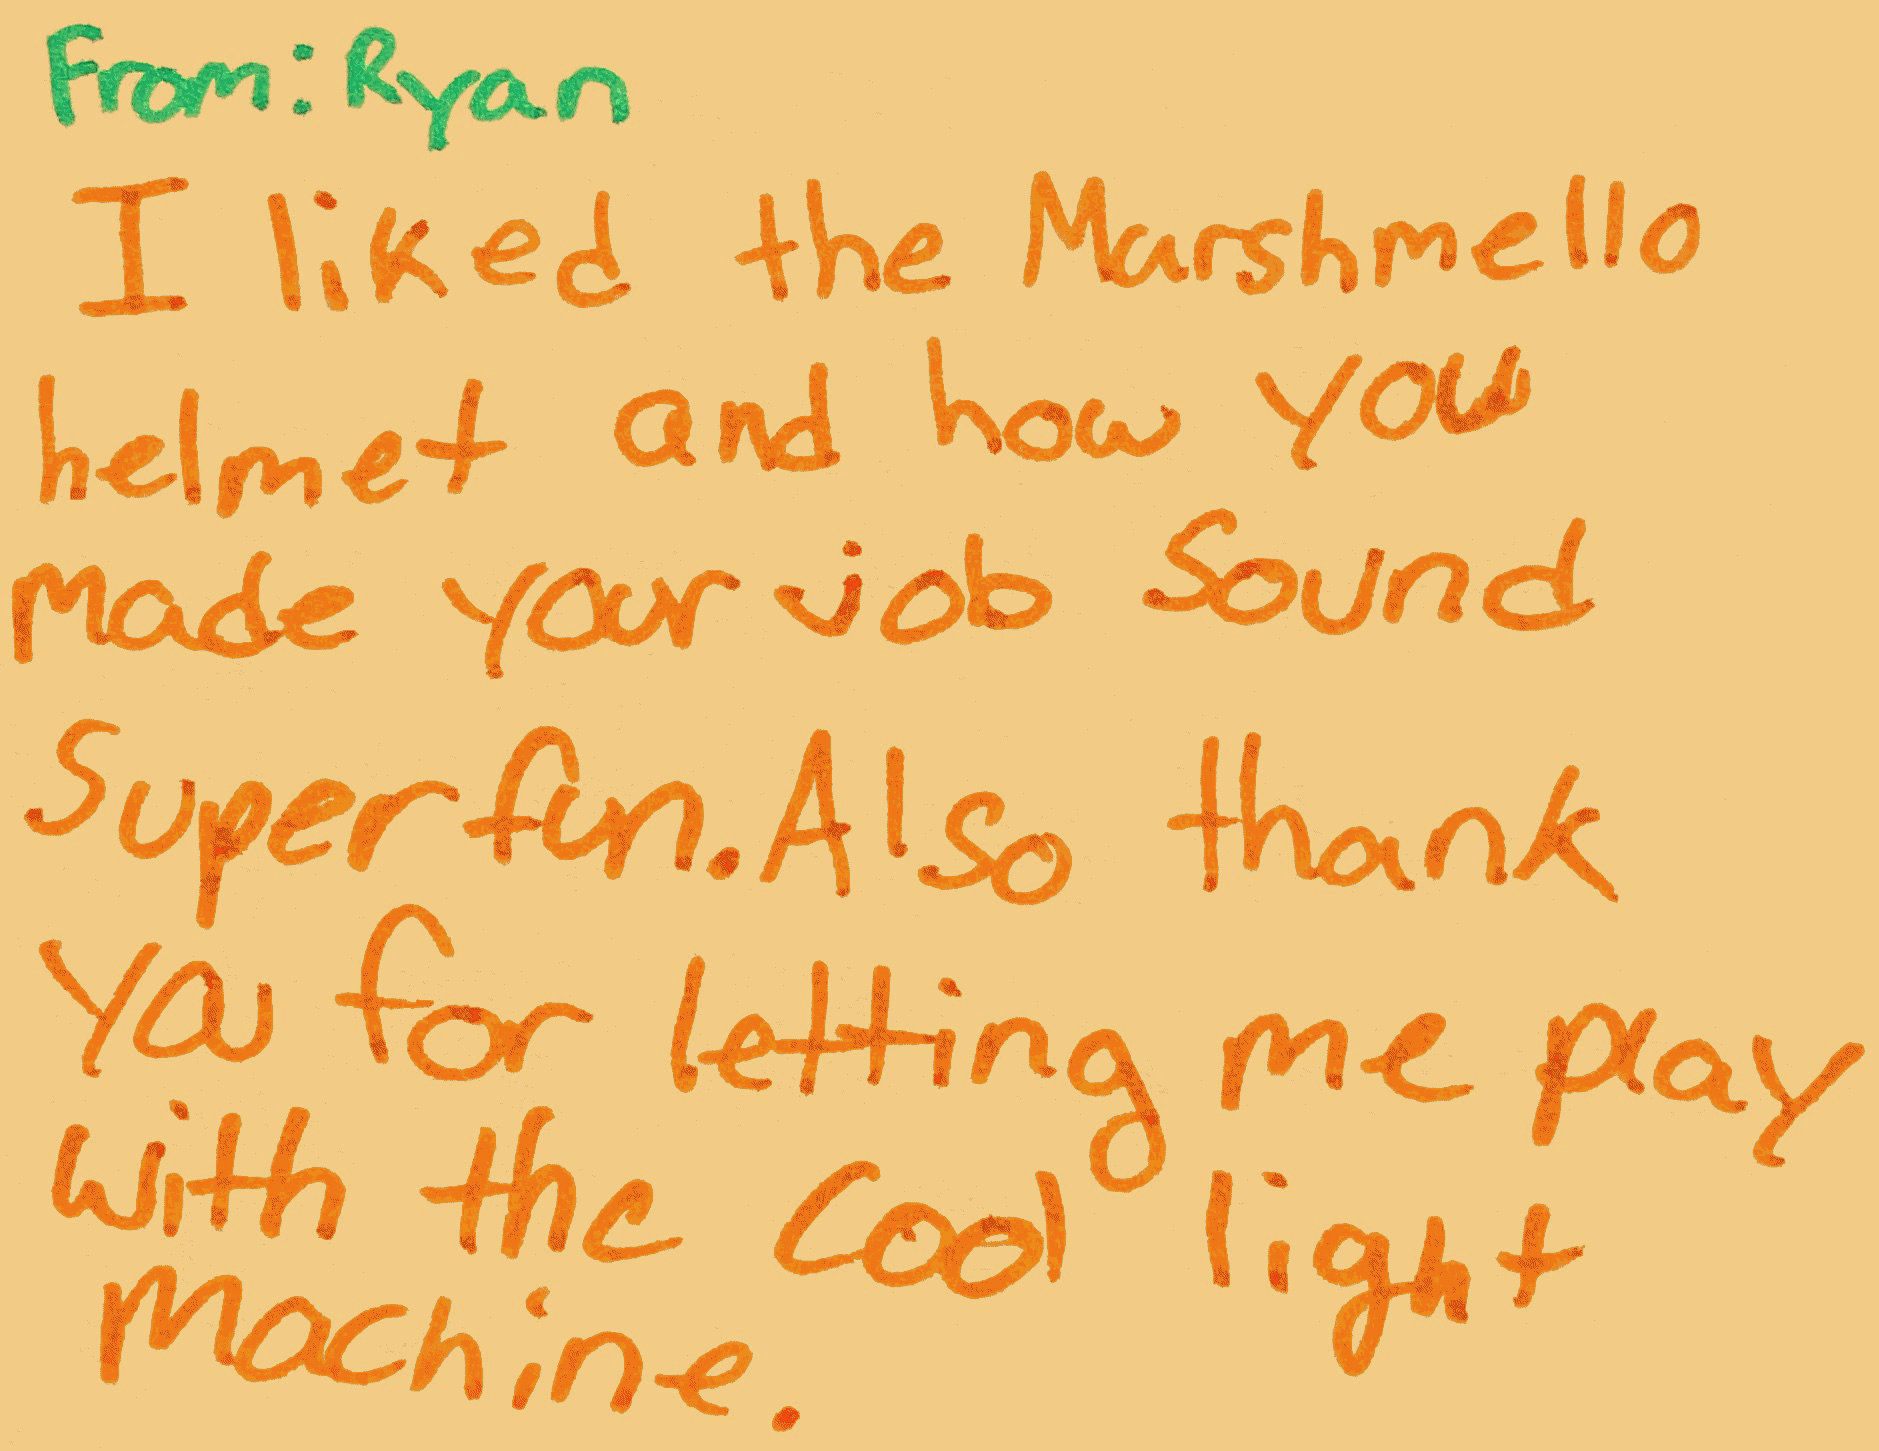 From: Ryan
I liked the Marshmello
helmet and how you
made your job sound
Super fun. Also thank
you for letting me play
with the cool light
machine.